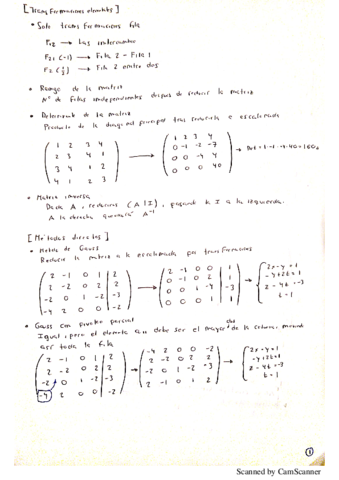 [Transformaciones elementales]
• Solo transformaciones fila
F₁₂ → Las intercambio
F₂₁(-1) → Fila 2 - Fila 1
F₂(1/2) → Fila 2 entre dos
• Rango de la matriz
Nº de filas independientes después de reducir la matriz
• Determinante de la matriz
Producto de la diagonal principal tras reducirla a escalonada
1 2 3 4
2 3 4 1
3 4 1 2
4 1 2 3
→
1 2 3 4
0 -1 -2 -7
0 0 -4 4
0 0 0 40
→ Det = 1·-1·-4·40 = 160
• Matriz inversa
Dada A, reducimos (A|I), pasando la I a la izquierda.
A la derecha quedará A⁻¹
[Métodos directos]
• Método de Gauss
Reducir la matriz a la escalonada por transformaciones
2 -1 0 1 | 2
2 -2 0 2 | 2
-2 0 1 -2 | -3
-4 2 0 0 | -2
→
2 -1 0 0 | 1
0 -1 0 2 | 1
0 0 1 -4 | -3
0 0 0 1 | 1
→
2x - y = 1
-y + 2t = 1
z - 4t = -3
t = 1
• Gauss con pivote parcial
Igual, pero el elemento a₁₁ debe ser el mayor de la columna, moviendo
así toda la fila
2 -1 0 1 | 2
2 -2 0 2 | 2
-2 0 1 -2 | -3
-4 2 0 0 | -2
→
-4 2 0 0 -2
2 -2 0 2 2
-2 0 1 -2 -3
2 -1 0 1 2
→
2x - y = 1
-y + 2t = 1
z - 4t = -3
t = 1
1
Scanned by CamScanner